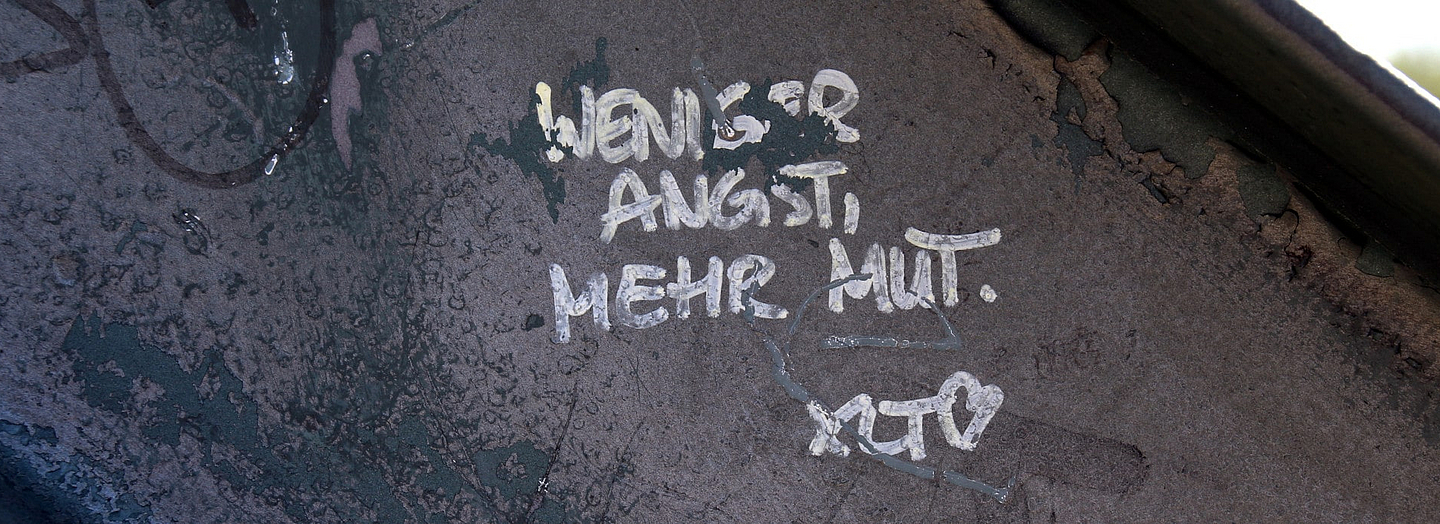 WENIGER
ANGST,
MEHR MUT.